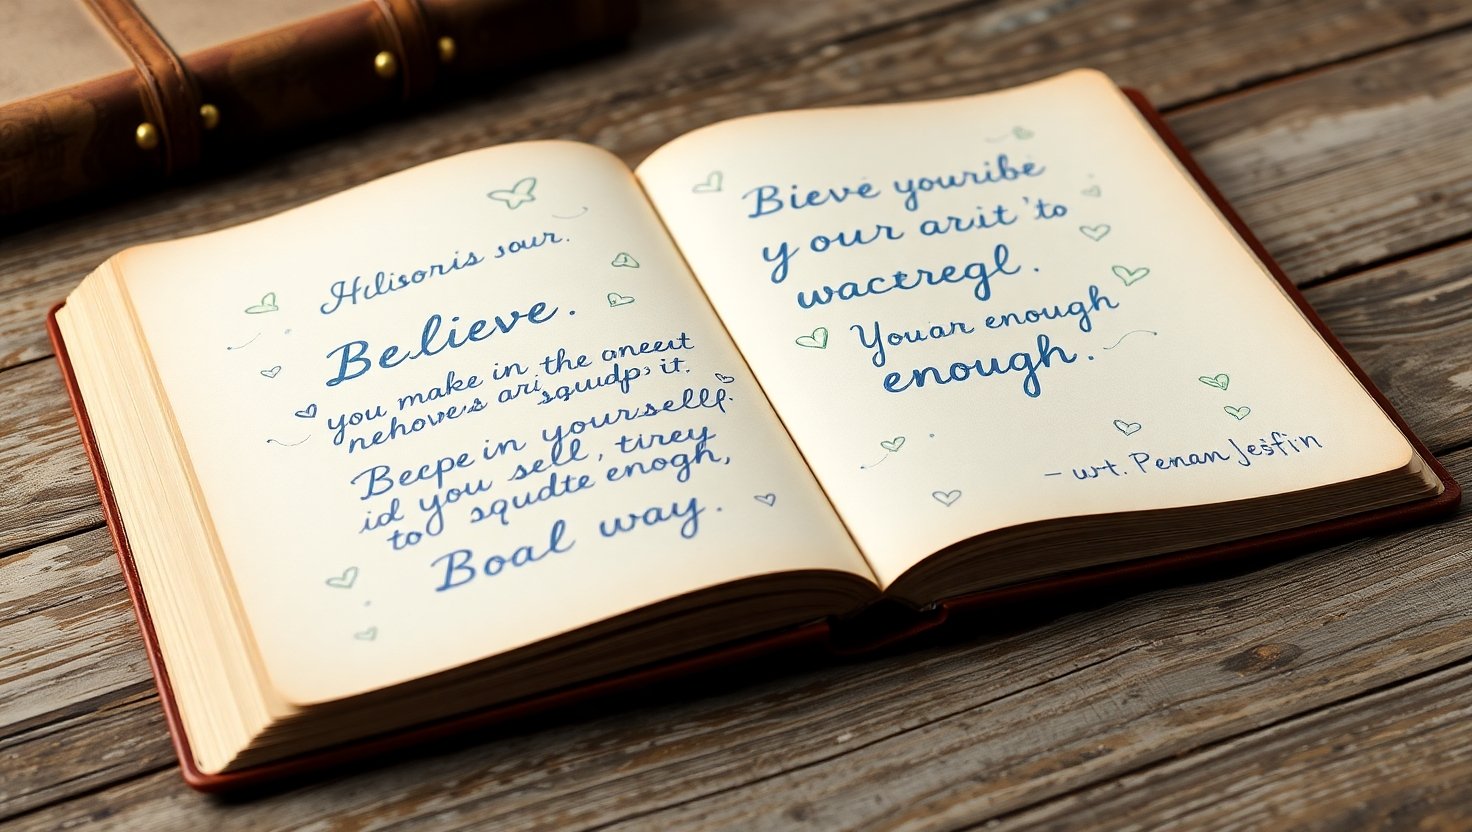 Hilisoris sour.
Believe.
you make in the aneeut
nehoves ari, squdp, it.
Becpe in yoursellp.
id you sell, tirey
to squdte enogh,
Boal way.
Bieve youribe
y our arit 'to
wactregl.
Youar enough
enough.
– wt. Penan Jesfin